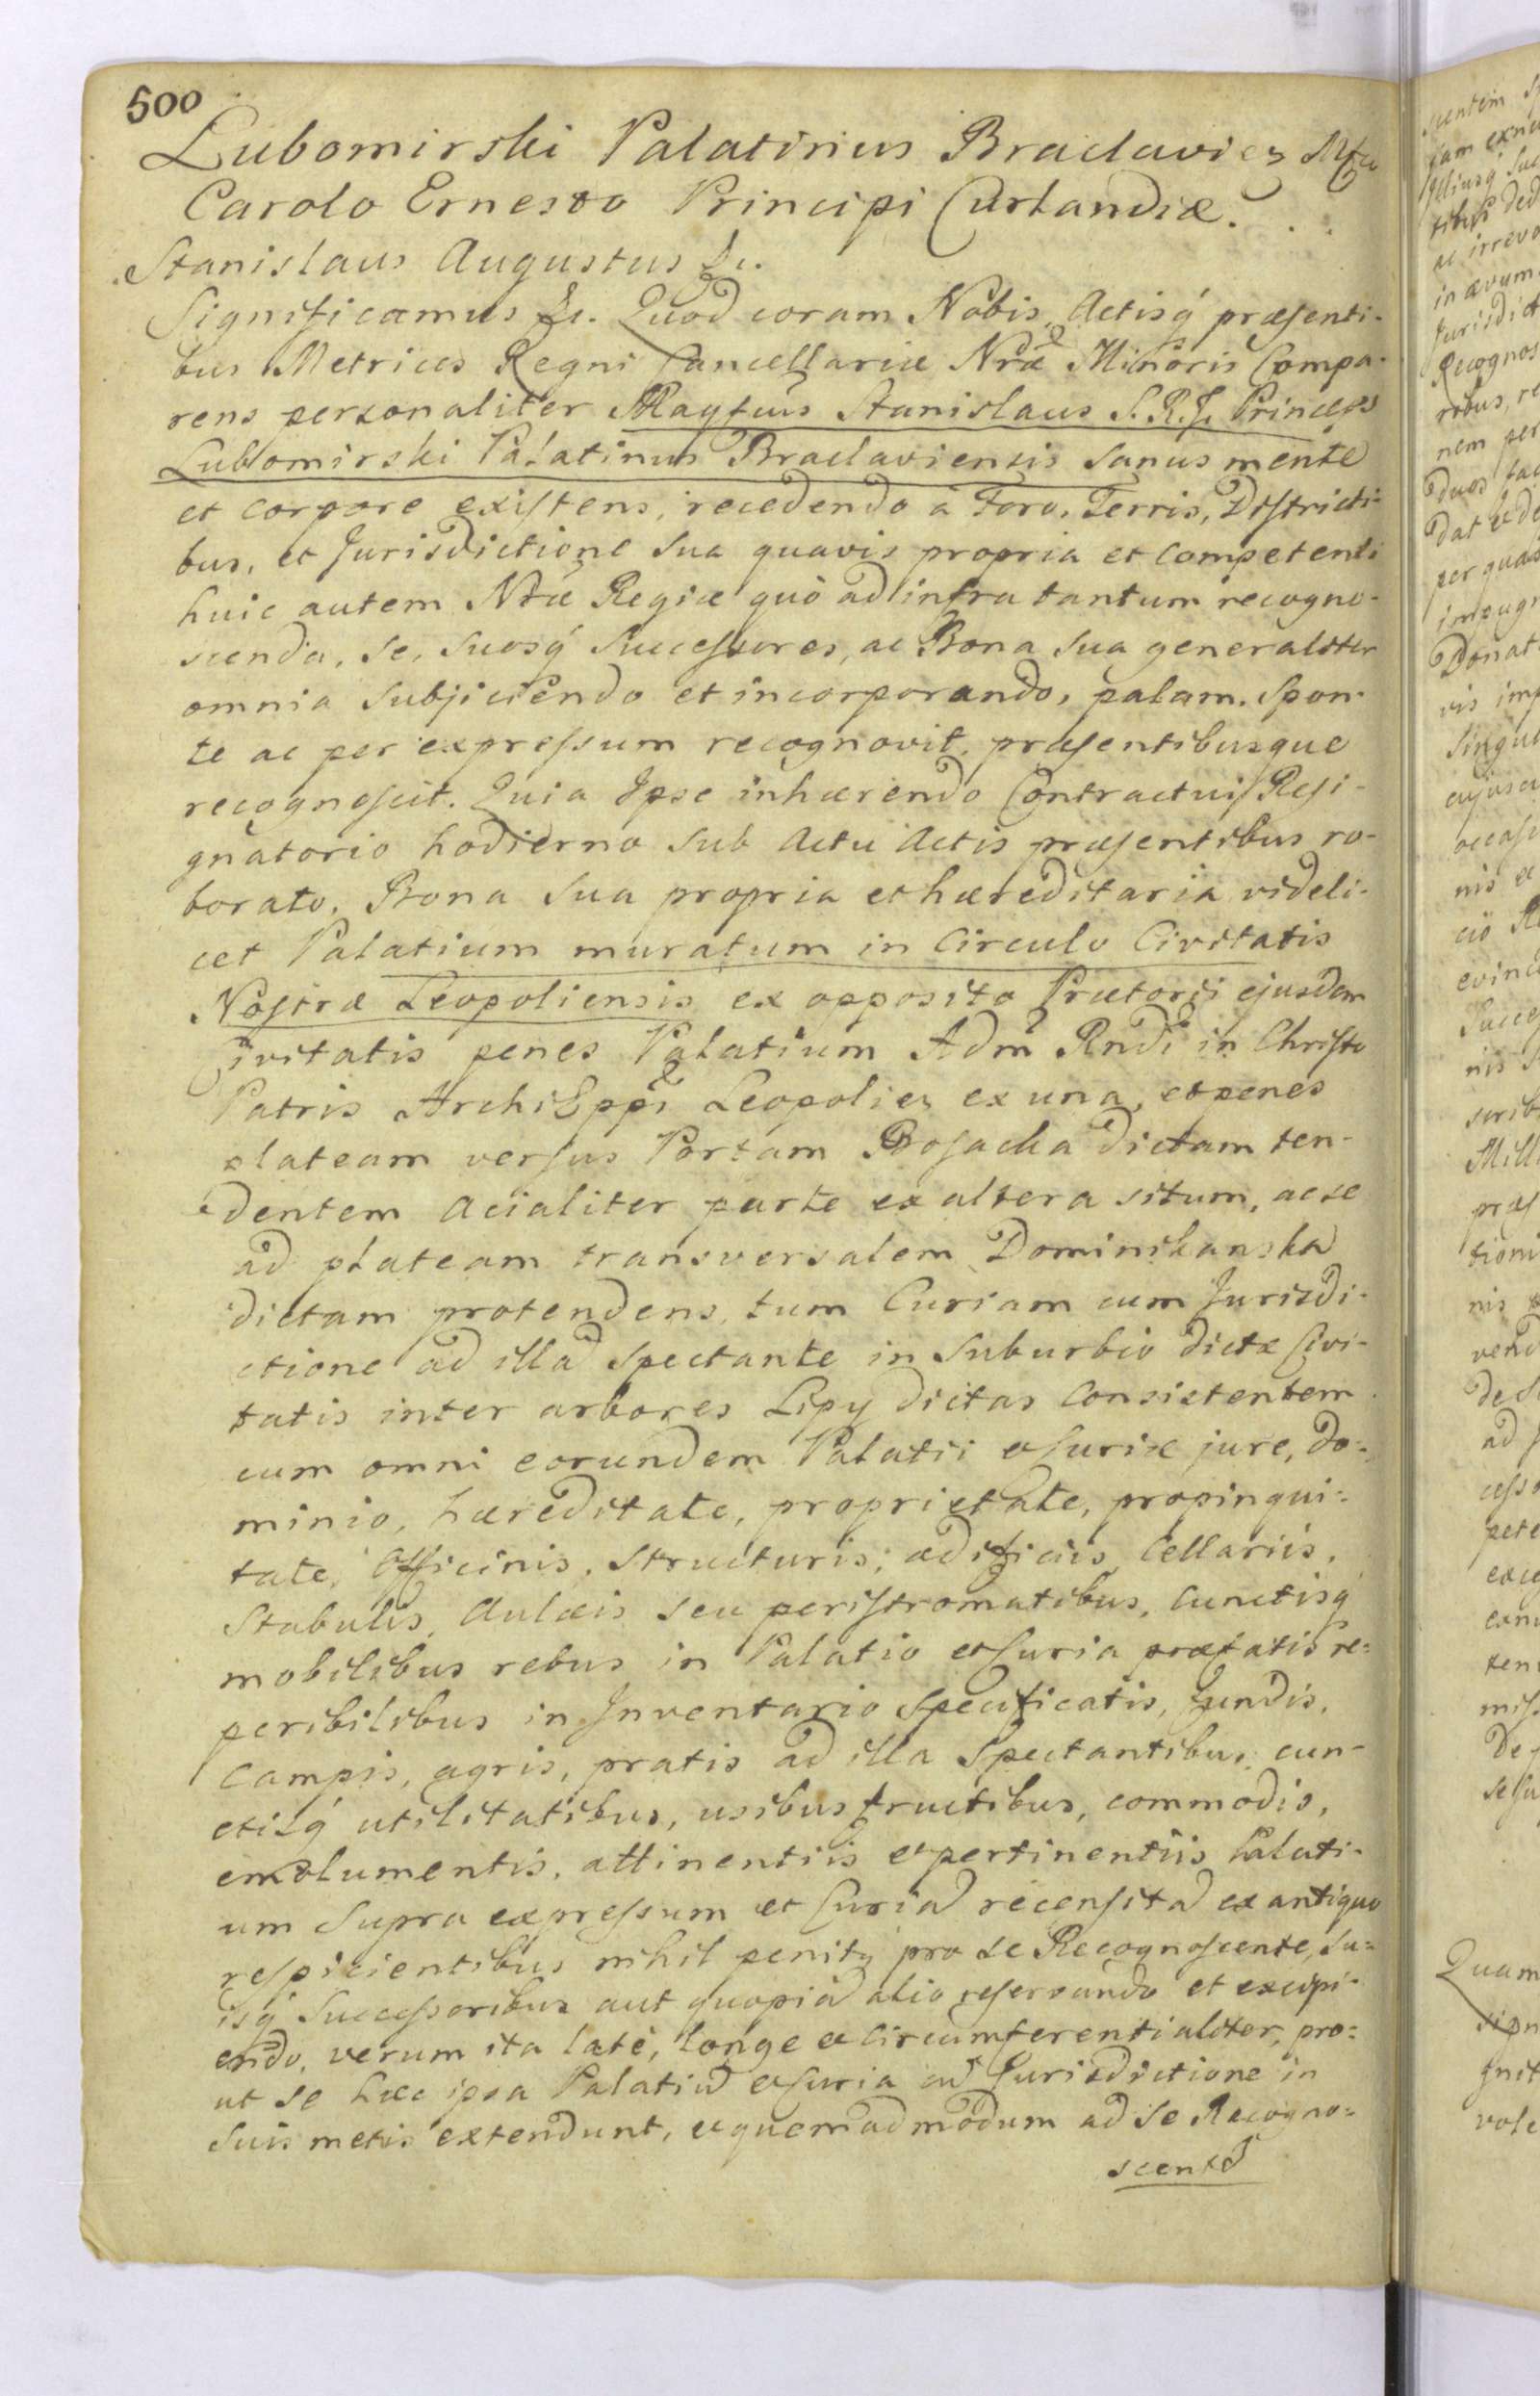 500
Lubomirski Palatinus Braclavien
Carolo Ernesto Principi Curlandiæ. . .
Stanislaus Augustus &c.
Significamus &c. Quod coram Nobis, Actisq́ præsenti-
bus Metrices Regni Cancellariæ Nræ Minoris Compa-
rens personaliter Magfcus Stanislaus S. R. I. Princeps
Lubomirski Palatinus Braclaviensis sanus mente
et corpore existens, recedendo à Foro, Terris, Districti-
bus, et Jurisdictione sua quavis propria et competenti
huic autem Nræ Regiæ quò ad infra tantum recogno-
scenda, se, suosq́ Successores, ac Bona sua generaliter
omnia subjiciendo et incorporando, palam, spon-
te ac per expressum recognovit, præsentibusque
recognoscit. Quia Ipse inhærendo Contractui Resi-
gnatorio hodierno sub Actu Actis præsentibus ro-
borato, Bona sua propria et hæreditaria videli-
cet Palatium muratum in Circulo Civitatis
Nostræ Leopoliensis ex opposito Prætorii ejusdem
Civitatis penes Palatium Adm Rndi in Christo
Patris ArchiEppi Leopolien ex una, et penes
plateam versus Portam Bosacka dictam ten-
dentem acialiter parte ex altera situm, ac se
ad plateam transversalem Dominikanska
dictam protendens, tum Curiam cum Jurisdi-
ctione ad illã spectante in suburbio dictæ Civi-
tatis inter arbores Lipy dictas consistentem
cum omni eorundem Palatii et Curiæ jure, do-
minio, hæreditate, proprietate, propinqui-
tate, Officinis, structuris, ædificiis, Cellariis,
Stabulis, Aulæis seu peristromatibus, cunctisq́
mobilibus rebus in Palatio et Curia præfatis re-
peribilibus in Inventario specificatis, fundis,
campis, agris, pratis ad illa spectantibus, cun-
ctisq́ utilitatibus, usibus fructibus, commodis,
emolumentis, attinentiis et pertinentiis Palati-
um supra expressum et Curiã recensitã ex antiquo
respicientibus nihil penitq pro se Recognoscente, su-
isq́ Successoribus aut quopiã alio reservando et excipi-
endo, verum ita latè, longe et circumferentialiter, pro-
ut se hæc ipsa Palatiũ et Curia cũ Jurisdictione in
suis metis extendunt, et quemadmodum ad se Recogno-
scentẽ